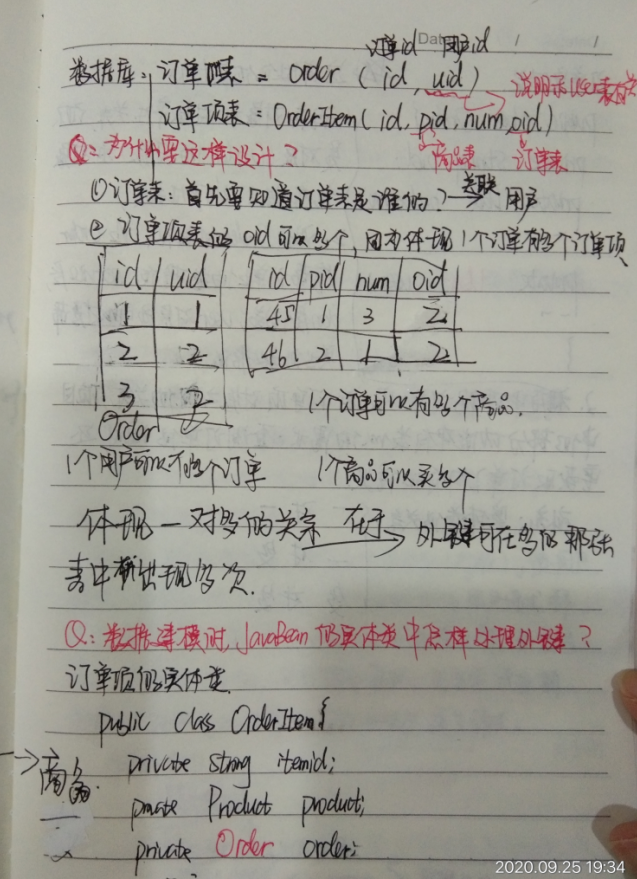 Da
订单id 用户id
数据库: 订单表 = Order (id, uid) 说明和user表有关
订单项表 = OrderItem (id, pid, num, oid)
商品表 订单表
Q: 为什么要这样设计?
①订单表: 首先要知道订单表是谁的? 关联 用户
② 订单项表的 oid 可以多个, 因为体现1个订单有多个订单项
id uid id pid num oid
1 1 45 1 3 2
2 2 46 2 1 2
3 2 1个订单可以有多个商品.
Order
1个用户可以有多个订单 1个商品可以买多个
体现一对多的关系 在于 外键可在多的那张
表中出现多次.
Q: 数据建模时, JavaBean的实体类中怎样处理外键?
订单项的实体类
public class OrderItem{
private String itemid;
private Product product;
private Order order;
2020.09.25 19:34